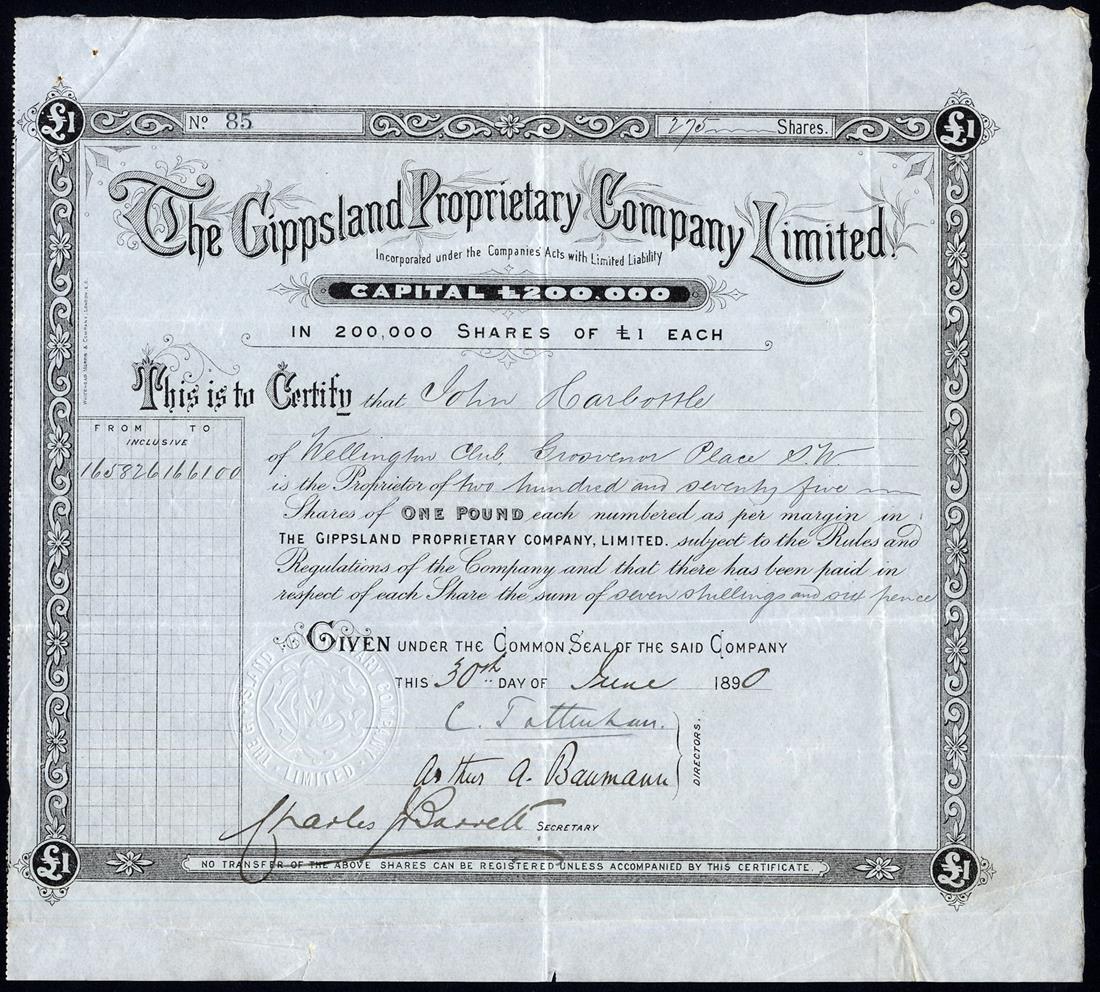 £1
No. 85
275 Shares.
£1
The Gippsland Proprietary Company Limited.
Incorporated under the Companies' Acts with Limited Liability
CAPITAL £200.000
IN 200,000 SHARES OF £1 EACH
This is to Certify that John Harbottle
of Wellington Club, Grosvenor Place S.W.
is the Proprietor of two hundred and seventy five
Shares of ONE POUND each numbered as per margin in
THE GIPPSLAND PROPRIETARY COMPANY, LIMITED. subject to the Rules and
Regulations of the Company and that there has been paid in
respect of each Share the sum of seven shillings and six pence
FROM TO
INCLUSIVE
165826 166100
WHITEHEAD MORRIS & COMPANY, LONDON E.C.
GIVEN UNDER THE COMMON SEAL OF THE SAID COMPANY
THIS 30th DAY OF June 1890
C. Tottenham.
Arthur A. Baumann
DIRECTORS.
Charles J Barrett SECRETARY
THE GIPPSLAND PROPRIETARY COMPANY LIMITED
£1
NO TRANSFER OF THE ABOVE SHARES CAN BE REGISTERED UNLESS ACCOMPANIED BY THIS CERTIFICATE.
£1